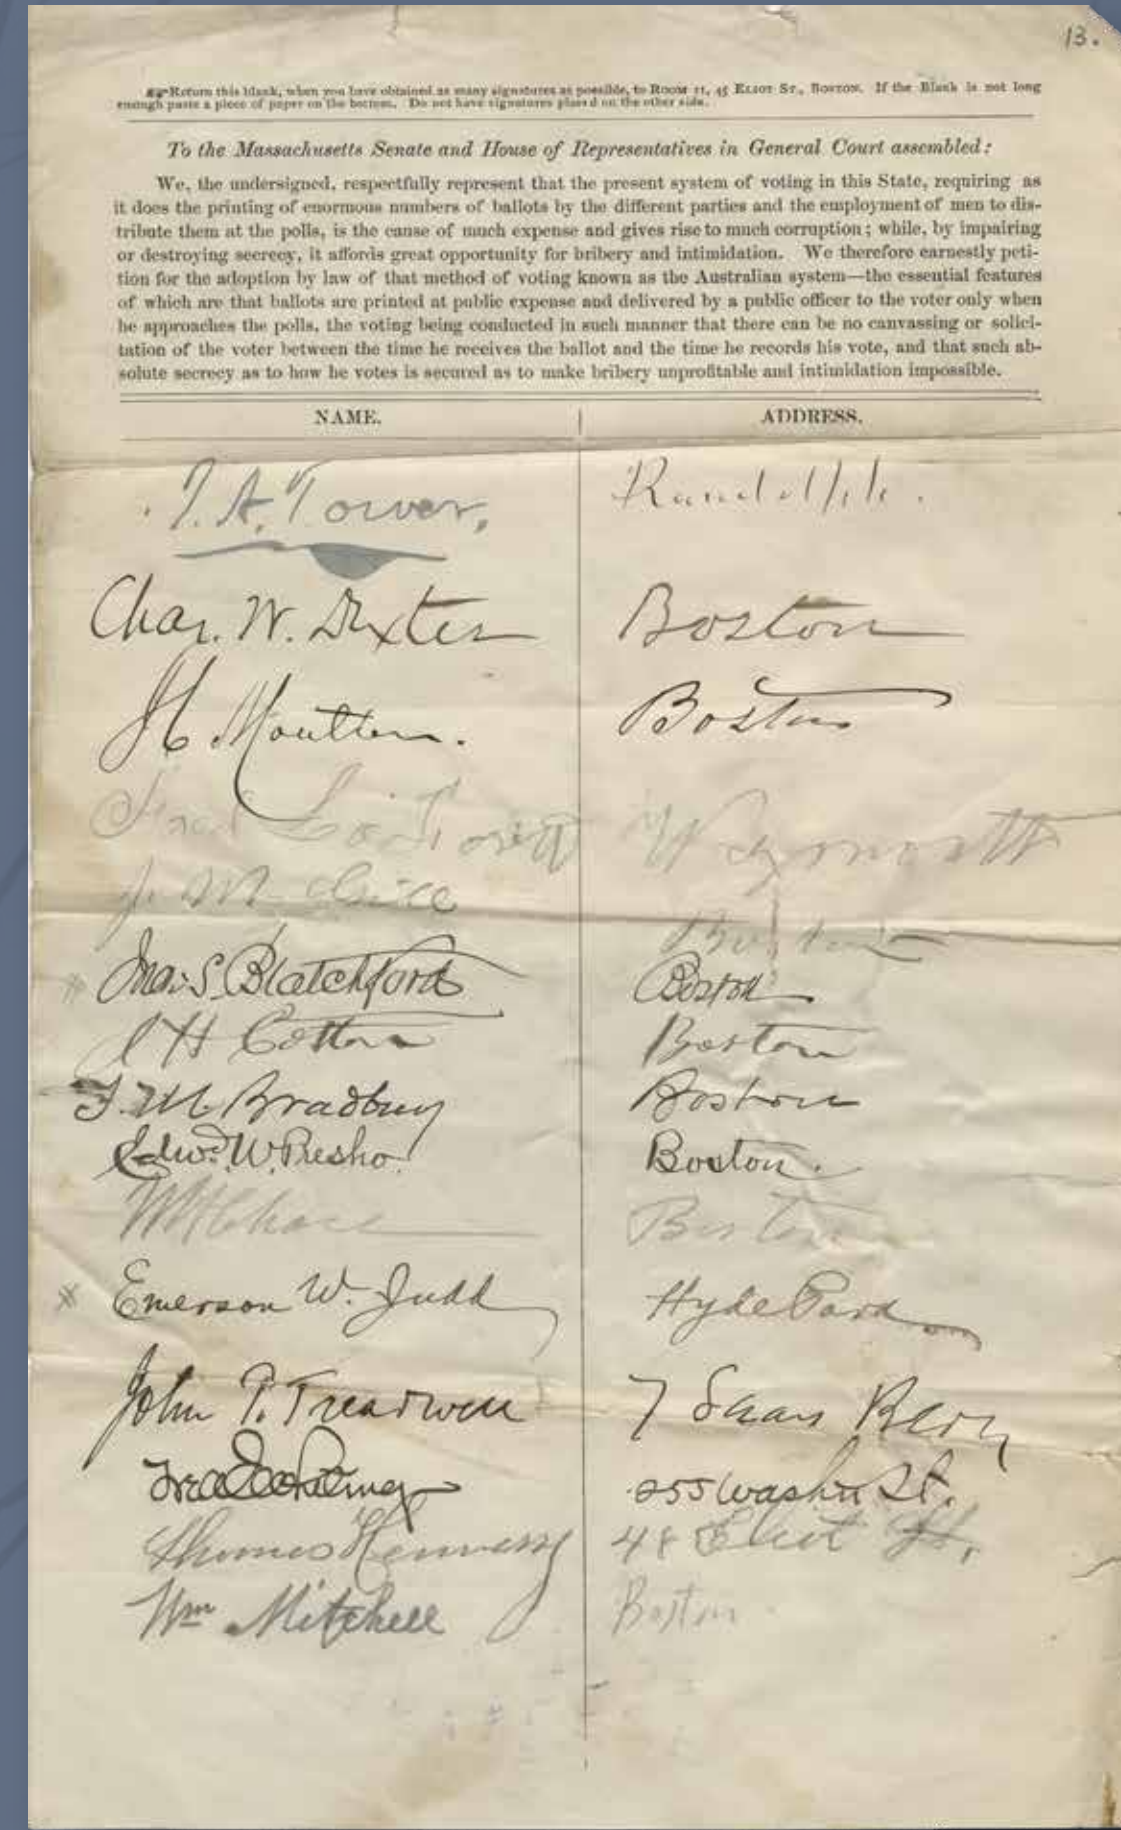 13.
Return this blank, when you have obtained as many signatures as possible, to ROOM 11, 45 ELIOT ST., BOSTON. If the Blank is not long
enough paste a piece of paper on the bottom. Do not have signatures placed on the other side.
To the Massachusetts Senate and House of Representatives in General Court assembled:
We, the undersigned, respectfully represent that the present system of voting in this State, requiring as
it does the printing of enormous numbers of ballots by the different parties and the employment of men to dis-
tribute them at the polls, is the cause of much expense and gives rise to much corruption; while, by impairing
or destroying secrecy, it affords great opportunity for bribery and intimidation. We therefore earnestly peti-
tion for the adoption by law of that method of voting known as the Australian system—the essential features
of which are that ballots are printed at public expense and delivered by a public officer to the voter only when
he approaches the polls, the voting being conducted in such manner that there can be no canvassing or solici-
tation of the voter between the time he receives the ballot and the time he records his vote, and that such ab-
solute secrecy as to how he votes is secured as to make bribery unprofitable and intimidation impossible.
NAME. ADDRESS.
A. Tower, Randolph.
Chas. W. Dexter Boston
Moulton. Boston
Fred Weymouth
J. M. Boston
S. Blatchford Boston
H Cotton Boston
M. Bradbury Boston
Edwd. W. Presho. Boston.
W H Chase Boston
Emerson W. Judd Hyde Park
John P. Treadwell 7
255 Washn St.
Thomas Hennessy 48 Eliot St,
Wm Mitchell Boston